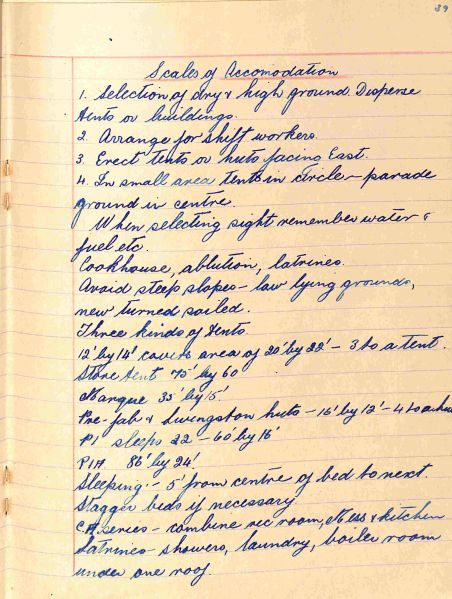 39
Scales of Accomodation
1. Selection of dry & high ground Disperse
tents or buildings.
2. Arrange for shift workers.
3. Erect tents or huts facing East.
4. In small area tents in circle - parade
ground in centre.
When selecting sight remember water &
fuel etc.
Cookhouse, ablution, latrines.
Avoid steep slopes - low lying grounds,
new turned soiled.
Three kinds of tents.
12' by 14' covers area of 20' by 22' - 3 to a tent.
Store tent 75' by 60
Marque 35' by 15'
Pre-fab & Livingston huts - 16' by 12' - 4 to a hut
P1 sleeps 22 - 60' by 16'
P1A 86' by 24'
Sleeping - 5' from centre of bed to next.
Stagger beds if necessary
series - combine rec room, Mess & kitchen
Latrines - showers, laundry, boiler room
under one roof.